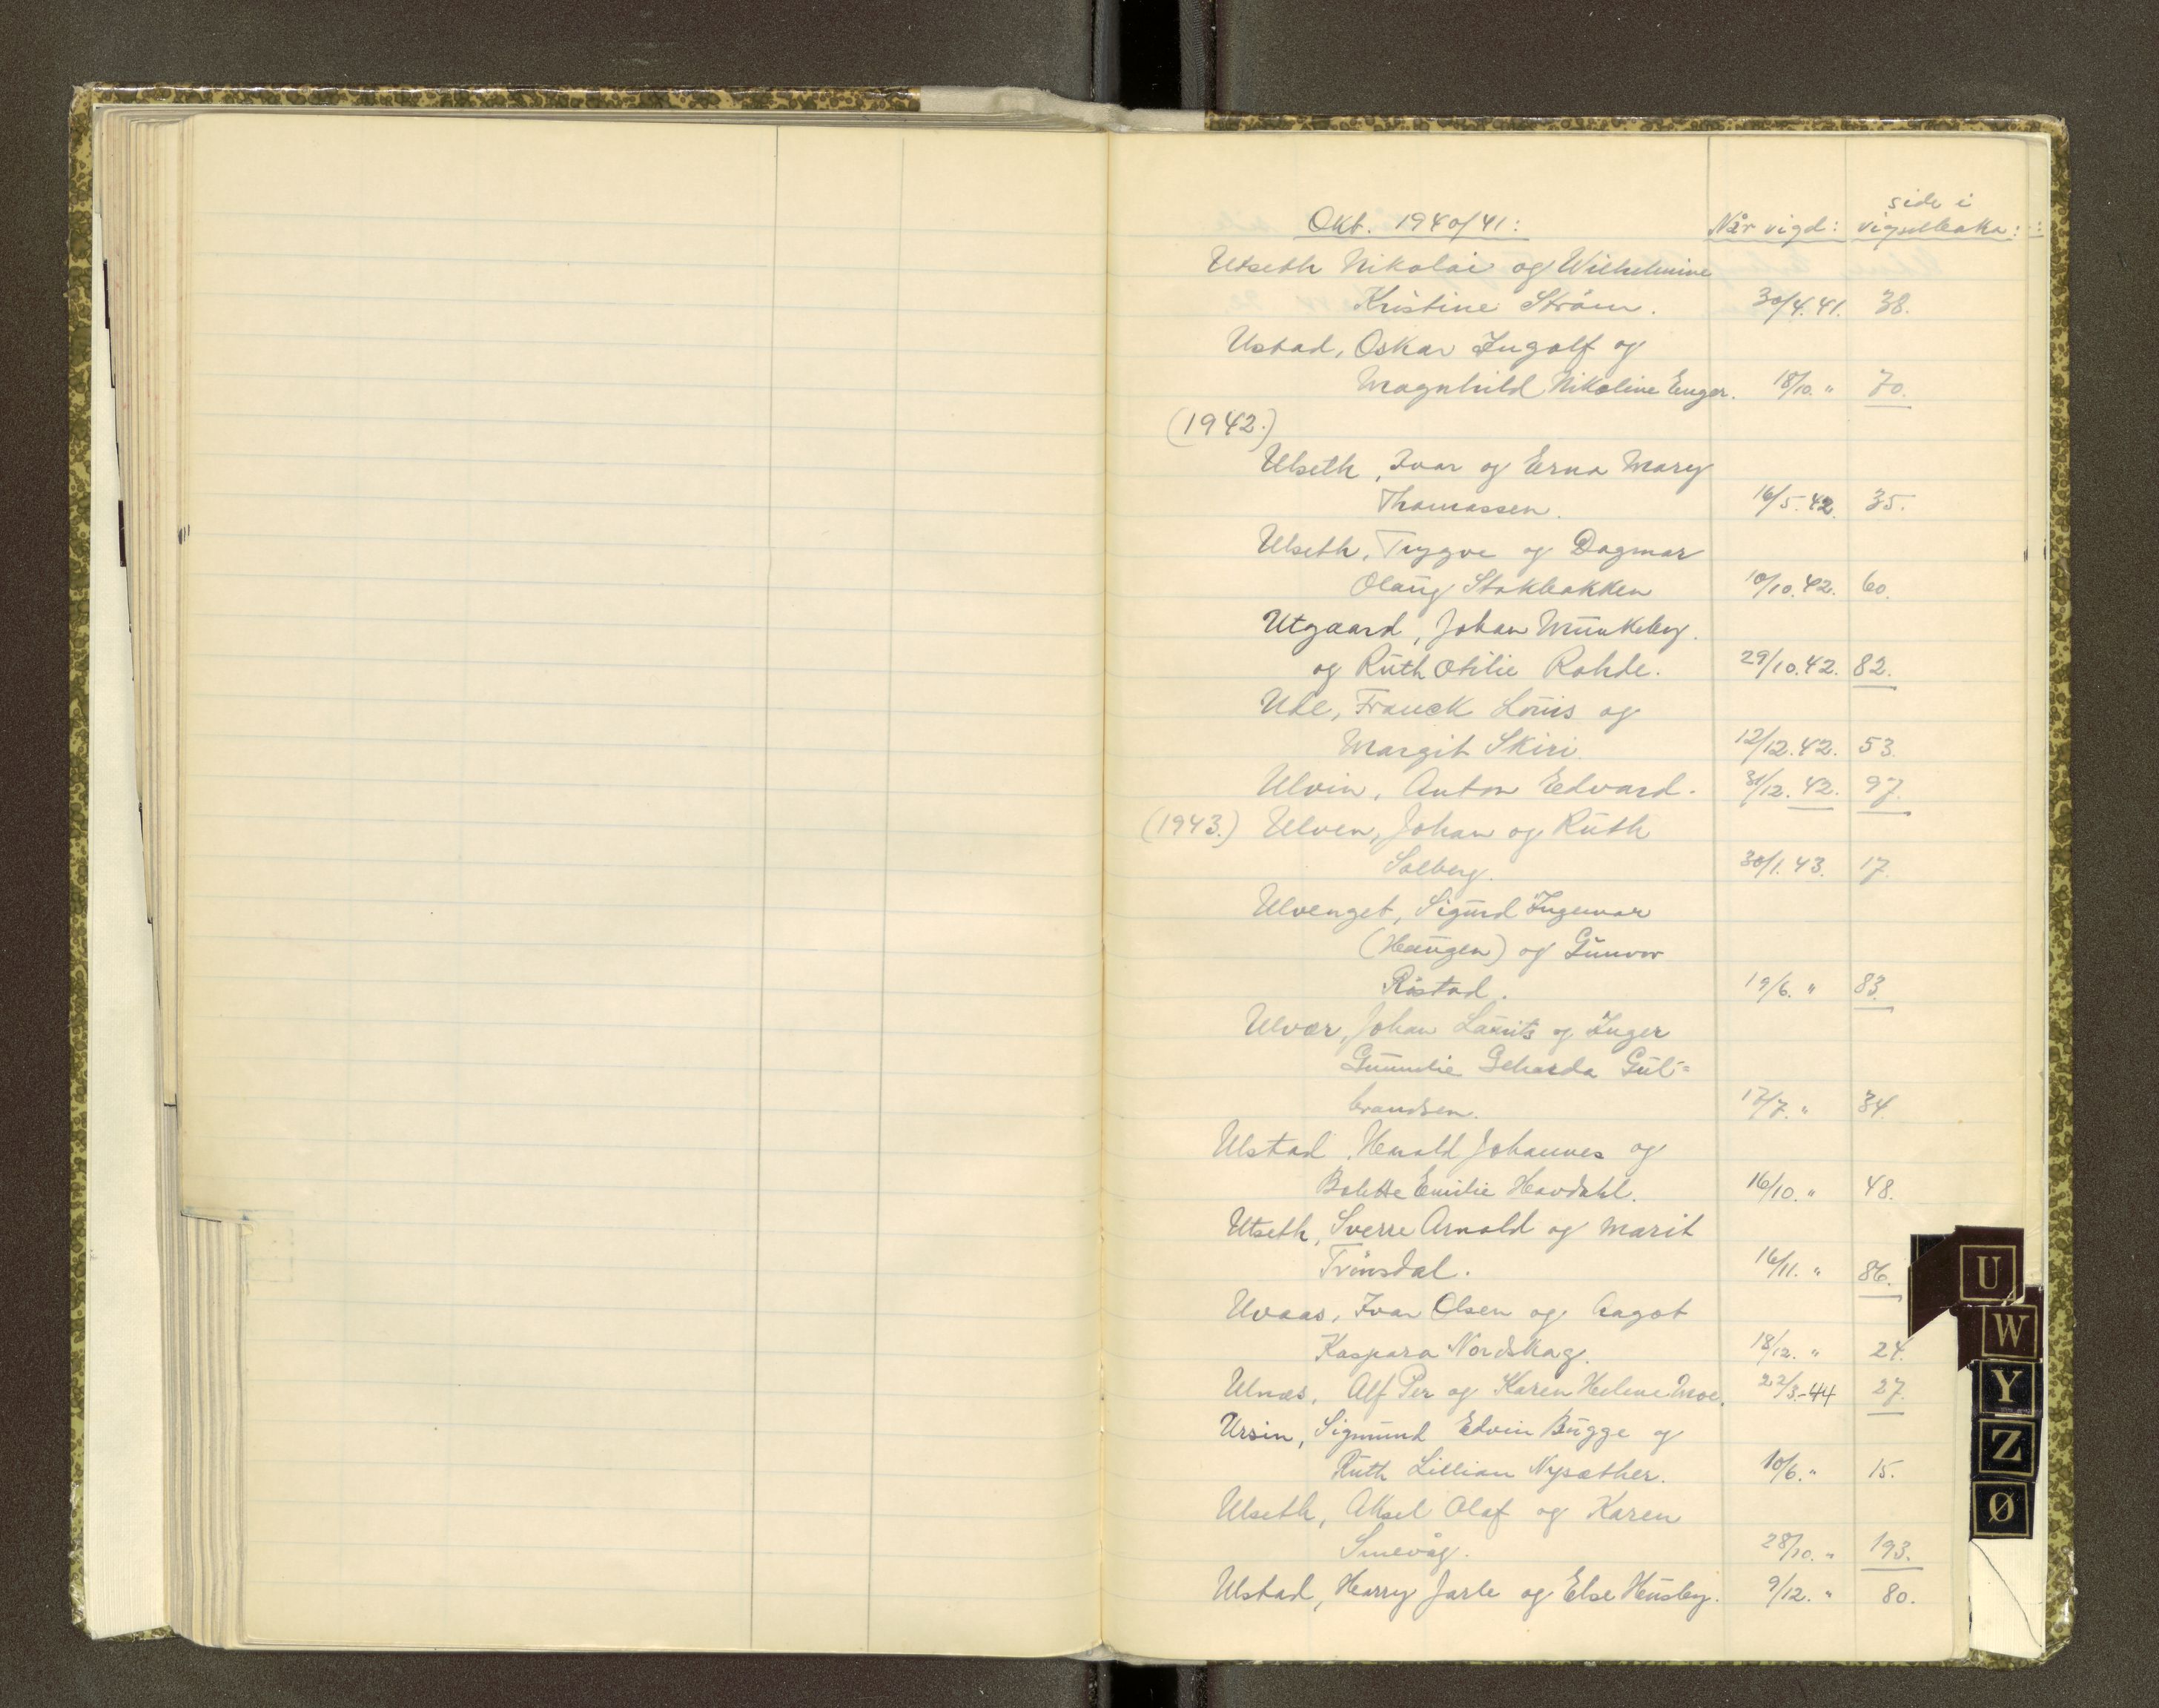 Okt. 1940/41: Når vigd: side i vigselboka:
Utseth Nikolai og Wilhelmine
Kristine Ström. 30/4.41. 38.
Ustad, Oskar Ingolf og
Magnhild Nikoline Enger. 18/10. " 70.
(1942.)
Ulseth, Ivar og Erna Mary
Thomassen. 16/5.42. 35.
Ulseth, Trygve og Dagmar
Olaug Stokbakken 10/10.42. 60.
Utgaard, Johan Munkeby.
og Ruth Otilie Rohde. 29/10.42. 82.
Ude, Franck Louis og
Margit Skiri. 12/12.42. 53.
Ulvin, Anton Edvard. 31/12.42. 97.
(1943.) Ulven, Johan og Ruth
Solberg. 30/1.43. 17.
Ulvenget, Sigurd Ingemar
(Haugen) og Gunvor
Ristad. 19/6. " 83.
Ulvær, Johan Lauritz og Inger
Gunnelie Geharda Gul=
brandsen. 17/7. " 34.
Ulstad, Harald Johannes og
Bolette Emilie Hovdahl. 16/10. " 48.
Utseth, Sverre Arnold og Marit
Trönsdal. 16/11. " 86.
Uvaas, Ivar Olsen og Aagot
Kaspara Nordskag. 18/12. " 24.
Ulnæs, Alf Per og Karen Helene Moe. 22/3.-44 27.
Ursin, Sigmund Edvin Bugge og
Ruth Lillian Nysæther. 10/6. " 15.
Ulseth, Aksel Olaf og Karen
Smevåg. 28/10. " 193.
Ulstad, Harry Jarle og Else Husby. 9/12. " 80.
U
W
Y
Z
Ø